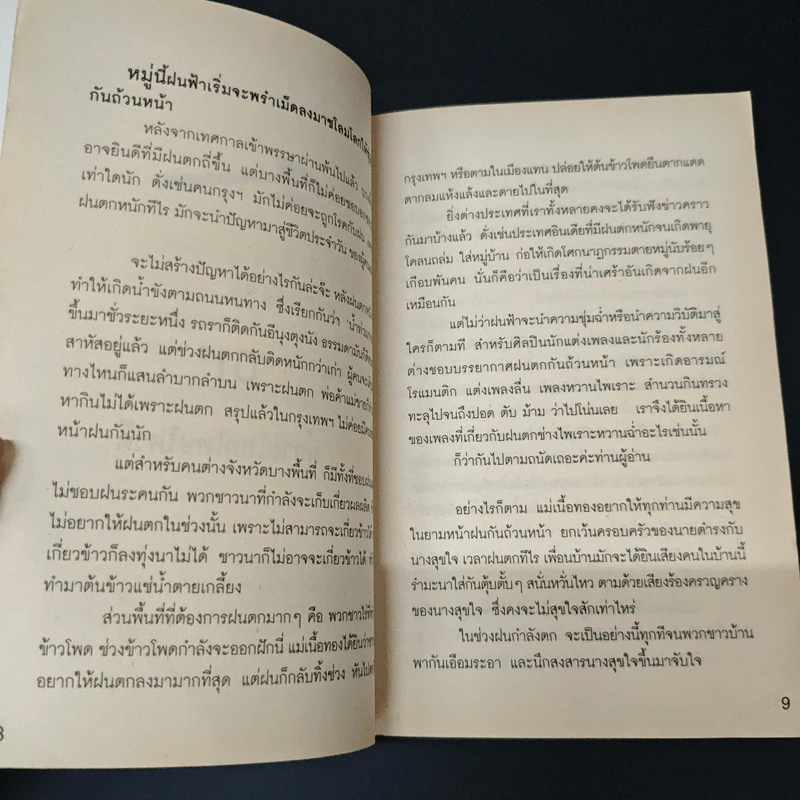 หมู่นี้ฝนฟ้าเริ่มจะพรำเม็ดลงมาชโลมโลกให้
กันถ้วนหน้า
หลังจากเทศกาลเข้าพรรษาผ่านพ้นไปแล้ว
อาจยินดีที่มีฝนตกถี่ขึ้น แต่บางพื้นที่ก็ไม่ค่อยชอบ
เท่าใดนัก ดั่งเช่นคนกรุงฯ มักไม่ค่อยจะถูกโรคกับฝน
ฝนตกหนักทีไร มักจะนำปัญหามาสู่ชีวิตประจำวัน
จะไม่สร้างปัญหาได้อย่างไรกันล่ะจ๊ะ หลังฝนตก
ทำให้เกิดน้ำขังตามถนนหนทาง ซึ่งเรียกกันว่า
ขึ้นมาชั่วระยะหนึ่ง รถราก็ติดกันอีนุงตุงนัง ธรรมดามันก็
สาหัสอยู่แล้ว แต่ช่วงฝนตกกลับติดหนักกว่าเก่า ผู้คนจะ
ทางไหนก็แสนลำบากลำบน เพราะฝนตก พ่อค้าแม่ขายก็
หากินไม่ได้เพราะฝนตก สรุปแล้วในกรุงเทพฯ ไม่ค่อย
หน้าฝนกันนัก
แต่สำหรับคนต่างจังหวัดบางพื้นที่ ก็มีทั้งที่ชอบ
ไม่ชอบฝนระคนกัน พวกชาวนาที่กำลังจะเก็บเกี่ยวผลผลิต
ไม่อยากให้ฝนตกในช่วงนั้น เพราะไม่สามารถจะเกี่ยวข้าวได้
เกี่ยวข้าวก็ลงทุ่งนาไม่ได้ ชาวนาก็ไม่อาจจะเกี่ยวข้าวได้
ทำมาต้นข้าวแช่น้ำตายเกลี้ยง
ส่วนพื้นที่ที่ต้องการฝนตกมากๆ คือ พวกชาวไร่
ข้าวโพด ช่วงข้าวโพดกำลังจะออกฝักนี่ แม่เนื้อทองได้ยินว่า
อยากให้ฝนตกลงมามากที่สุด แต่ฝนก็กลับทิ้งช่วง หันไป
กรุงเทพฯ หรือตามในเมืองแทน ปล่อยให้ต้นข้าวโพดยืนตากแดด
ตากลมแห้งแล้งและตายไปในที่สุด
ยิ่งต่างประเทศที่เราทั้งหลายคงจะได้รับฟังข่าวคราว
กันมาบ้างแล้ว ดั่งเช่นประเทศอินเดียที่มีฝนตกหนักจนเกิดพายุ
โคลนถล่ม ใส่หมู่บ้าน ก่อให้เกิดโศกนาฏกรรมตายหมู่นับร้อยๆ
เกือบพันคน นั่นก็คือว่าเป็นเรื่องที่น่าเศร้าอันเกิดจากฝนอีก
เหมือนกัน
แต่ไม่ว่าฝนฟ้าจะนำความชุ่มฉ่ำหรือนำความวิบัติมาสู่
ใครก็ตามที สำหรับศิลปินนักแต่งเพลงและนักร้องทั้งหลาย
ต่างชอบบรรยากาศฝนตกกันถ้วนหน้า เพราะเกิดอารมณ์
โรแมนติก แต่งเพลงลื่น เพลงหวานไพเราะ สำนวนกินทรวง
ทะลุไปจนถึงปอด ตับ ม้าม ว่าไปโน่นเลย เราจึงได้ยินเนื้อหา
ของเพลงที่เกี่ยวกับฝนตกช่างไพเราะหวานฉ่ำอะไรเช่นนั้น
ก็ว่ากันไปตามถนัดเถอะค่ะท่านผู้อ่าน
อย่างไรก็ตาม แม่เนื้อทองอยากให้ทุกท่านมีความสุข
ในยามหน้าฝนกันถ้วนหน้า ยกเว้นครอบครัวของนายดำรงกับ
นางสุขใจ เวลาฝนตกทีไร เพื่อนบ้านมักจะได้ยินเสียงคนในบ้านนี้
รำมะนาใส่กันตุ้บตั้บๆ สนั่นหวั่นไหว ตามด้วยเสียงร้องครวญคราง
ของนางสุขใจ ซึ่งคงจะไม่สุขใจสักเท่าไหร่
ในช่วงฝนกำลังตก จะเป็นอย่างนี้ทุกทีจนพวกชาวบ้าน
พากันเอือมระอา และนึกสงสารนางสุขใจขึ้นมาจับใจ
9